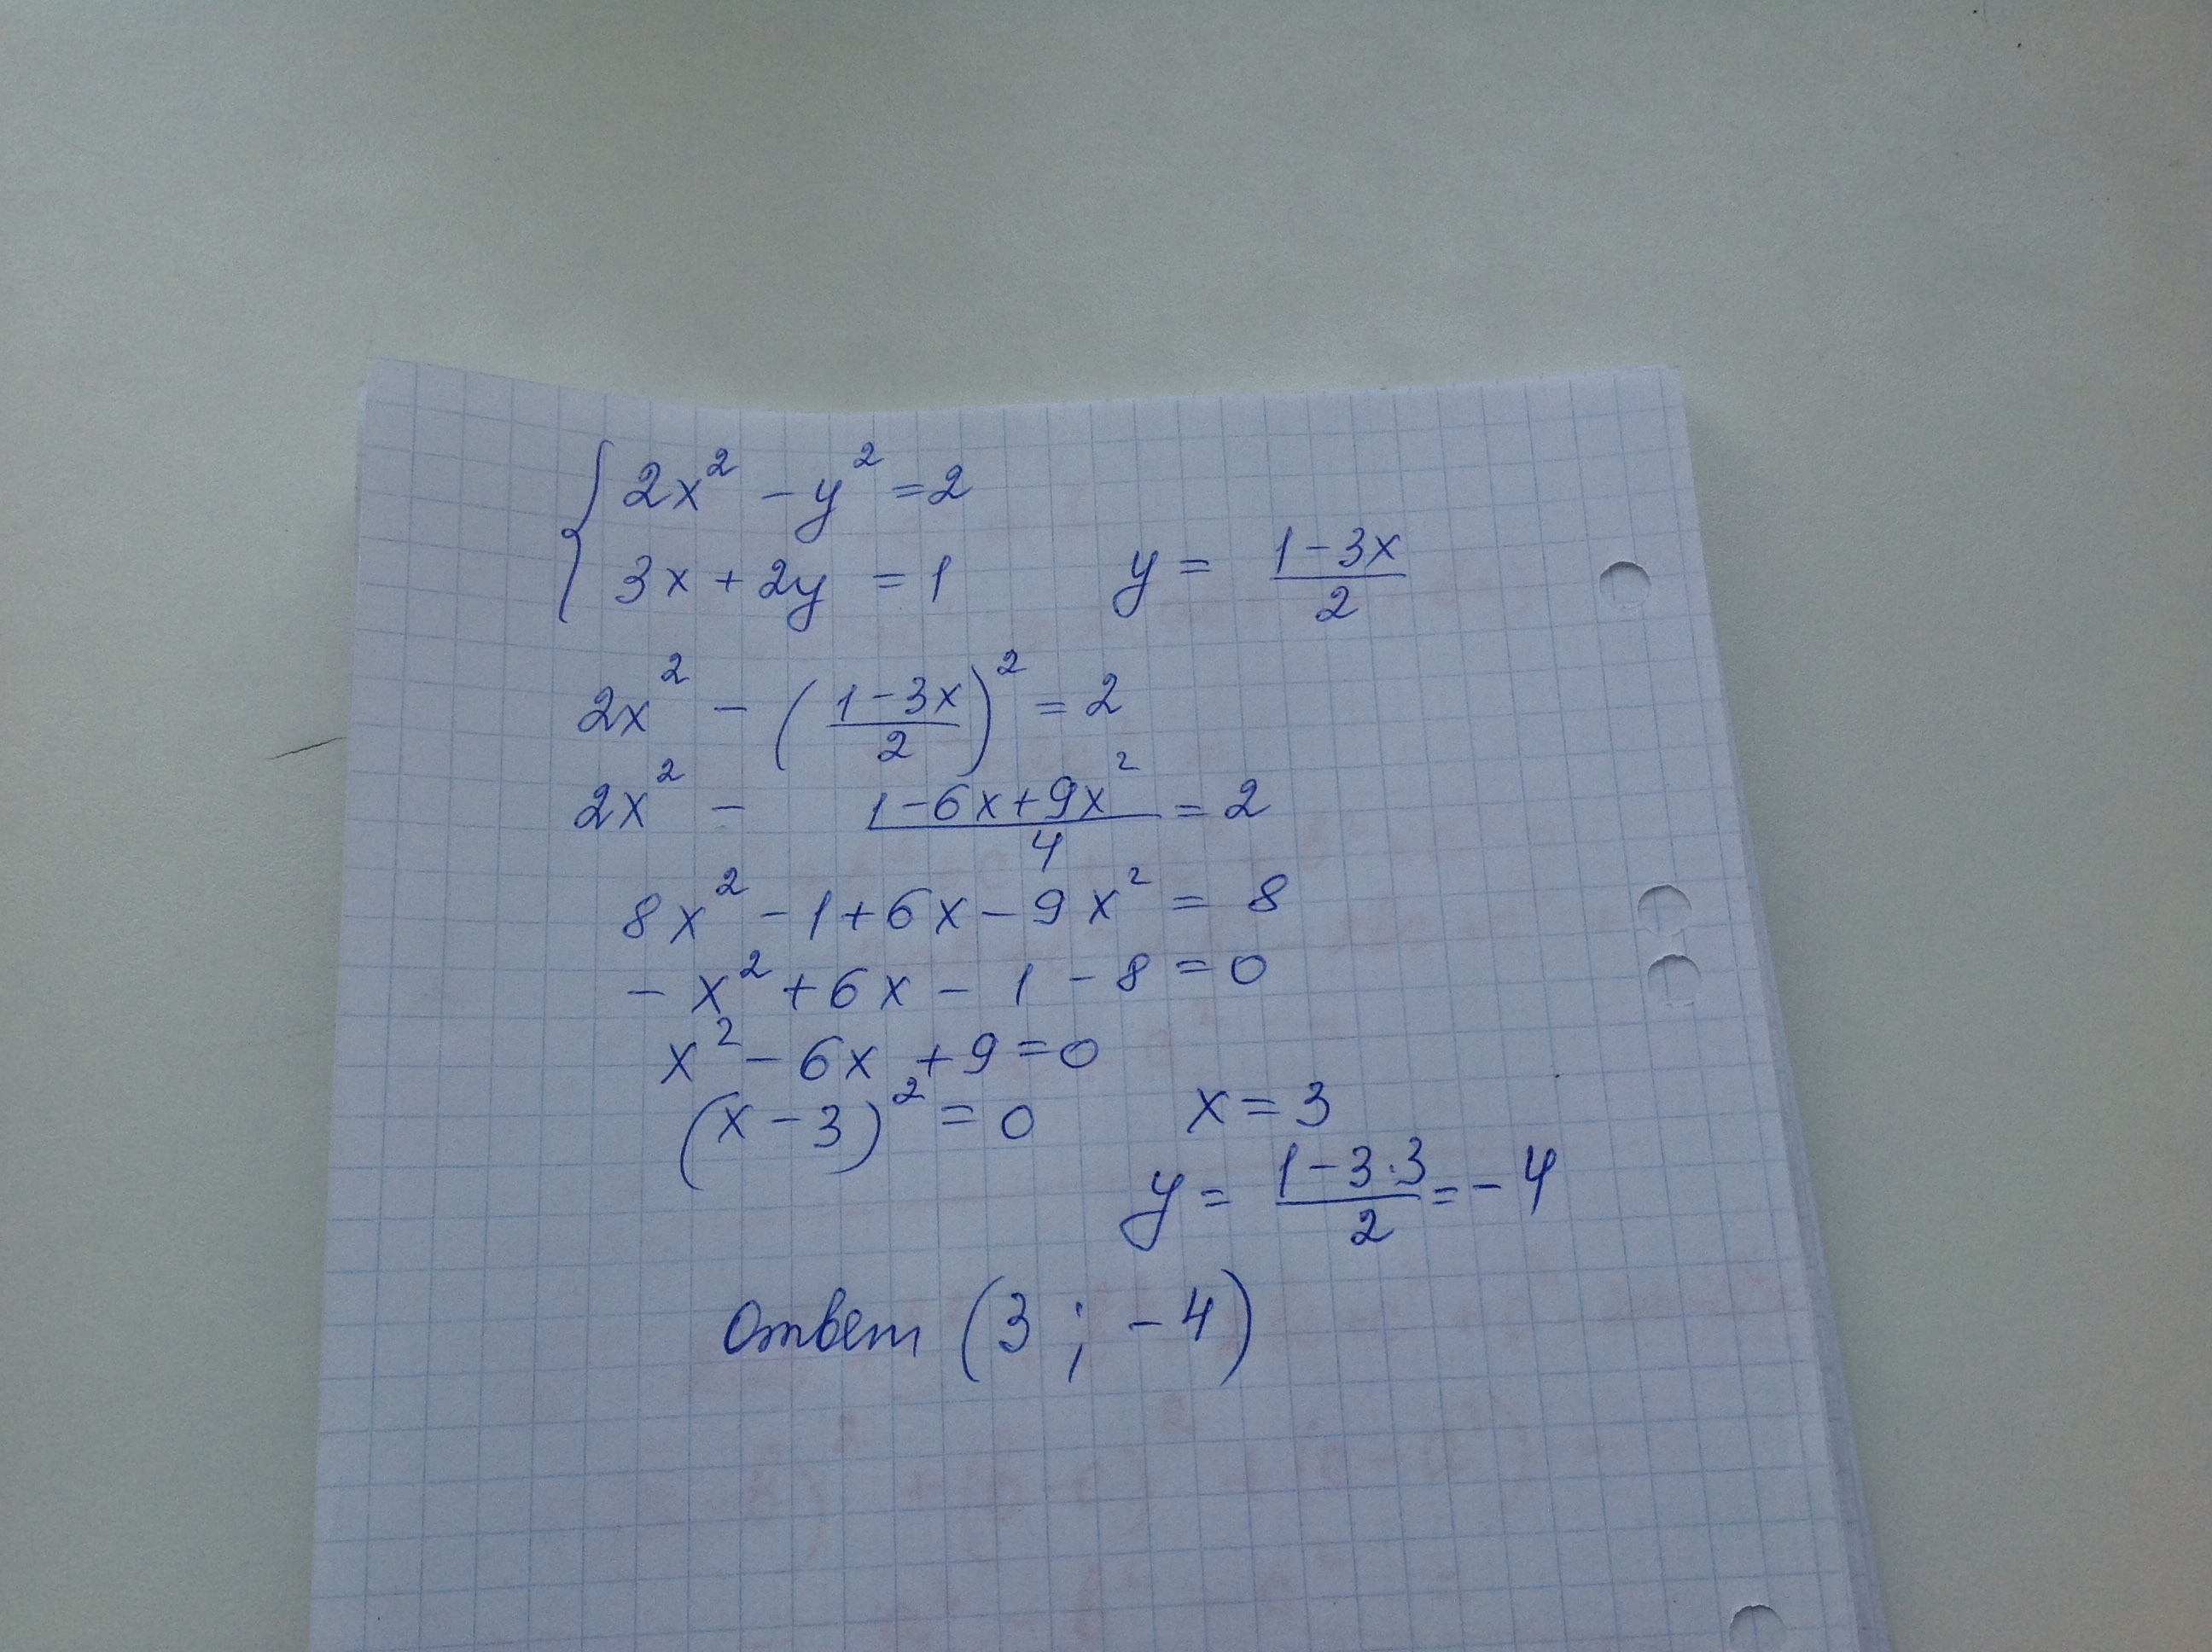 { 2x² - y² = 2
3x + 2y = 1 y = (1-3x)/2
2x² - ((1-3x)/2)² = 2
2x² - (1-6x+9x²)/4 = 2
8x² - 1 + 6x - 9x² = 8
- x² + 6x - 1 - 8 = 0
x² - 6x + 9 = 0
(x - 3)² = 0 x = 3
y = (1-3·3)/2 = -4
Ответ (3 ; -4)